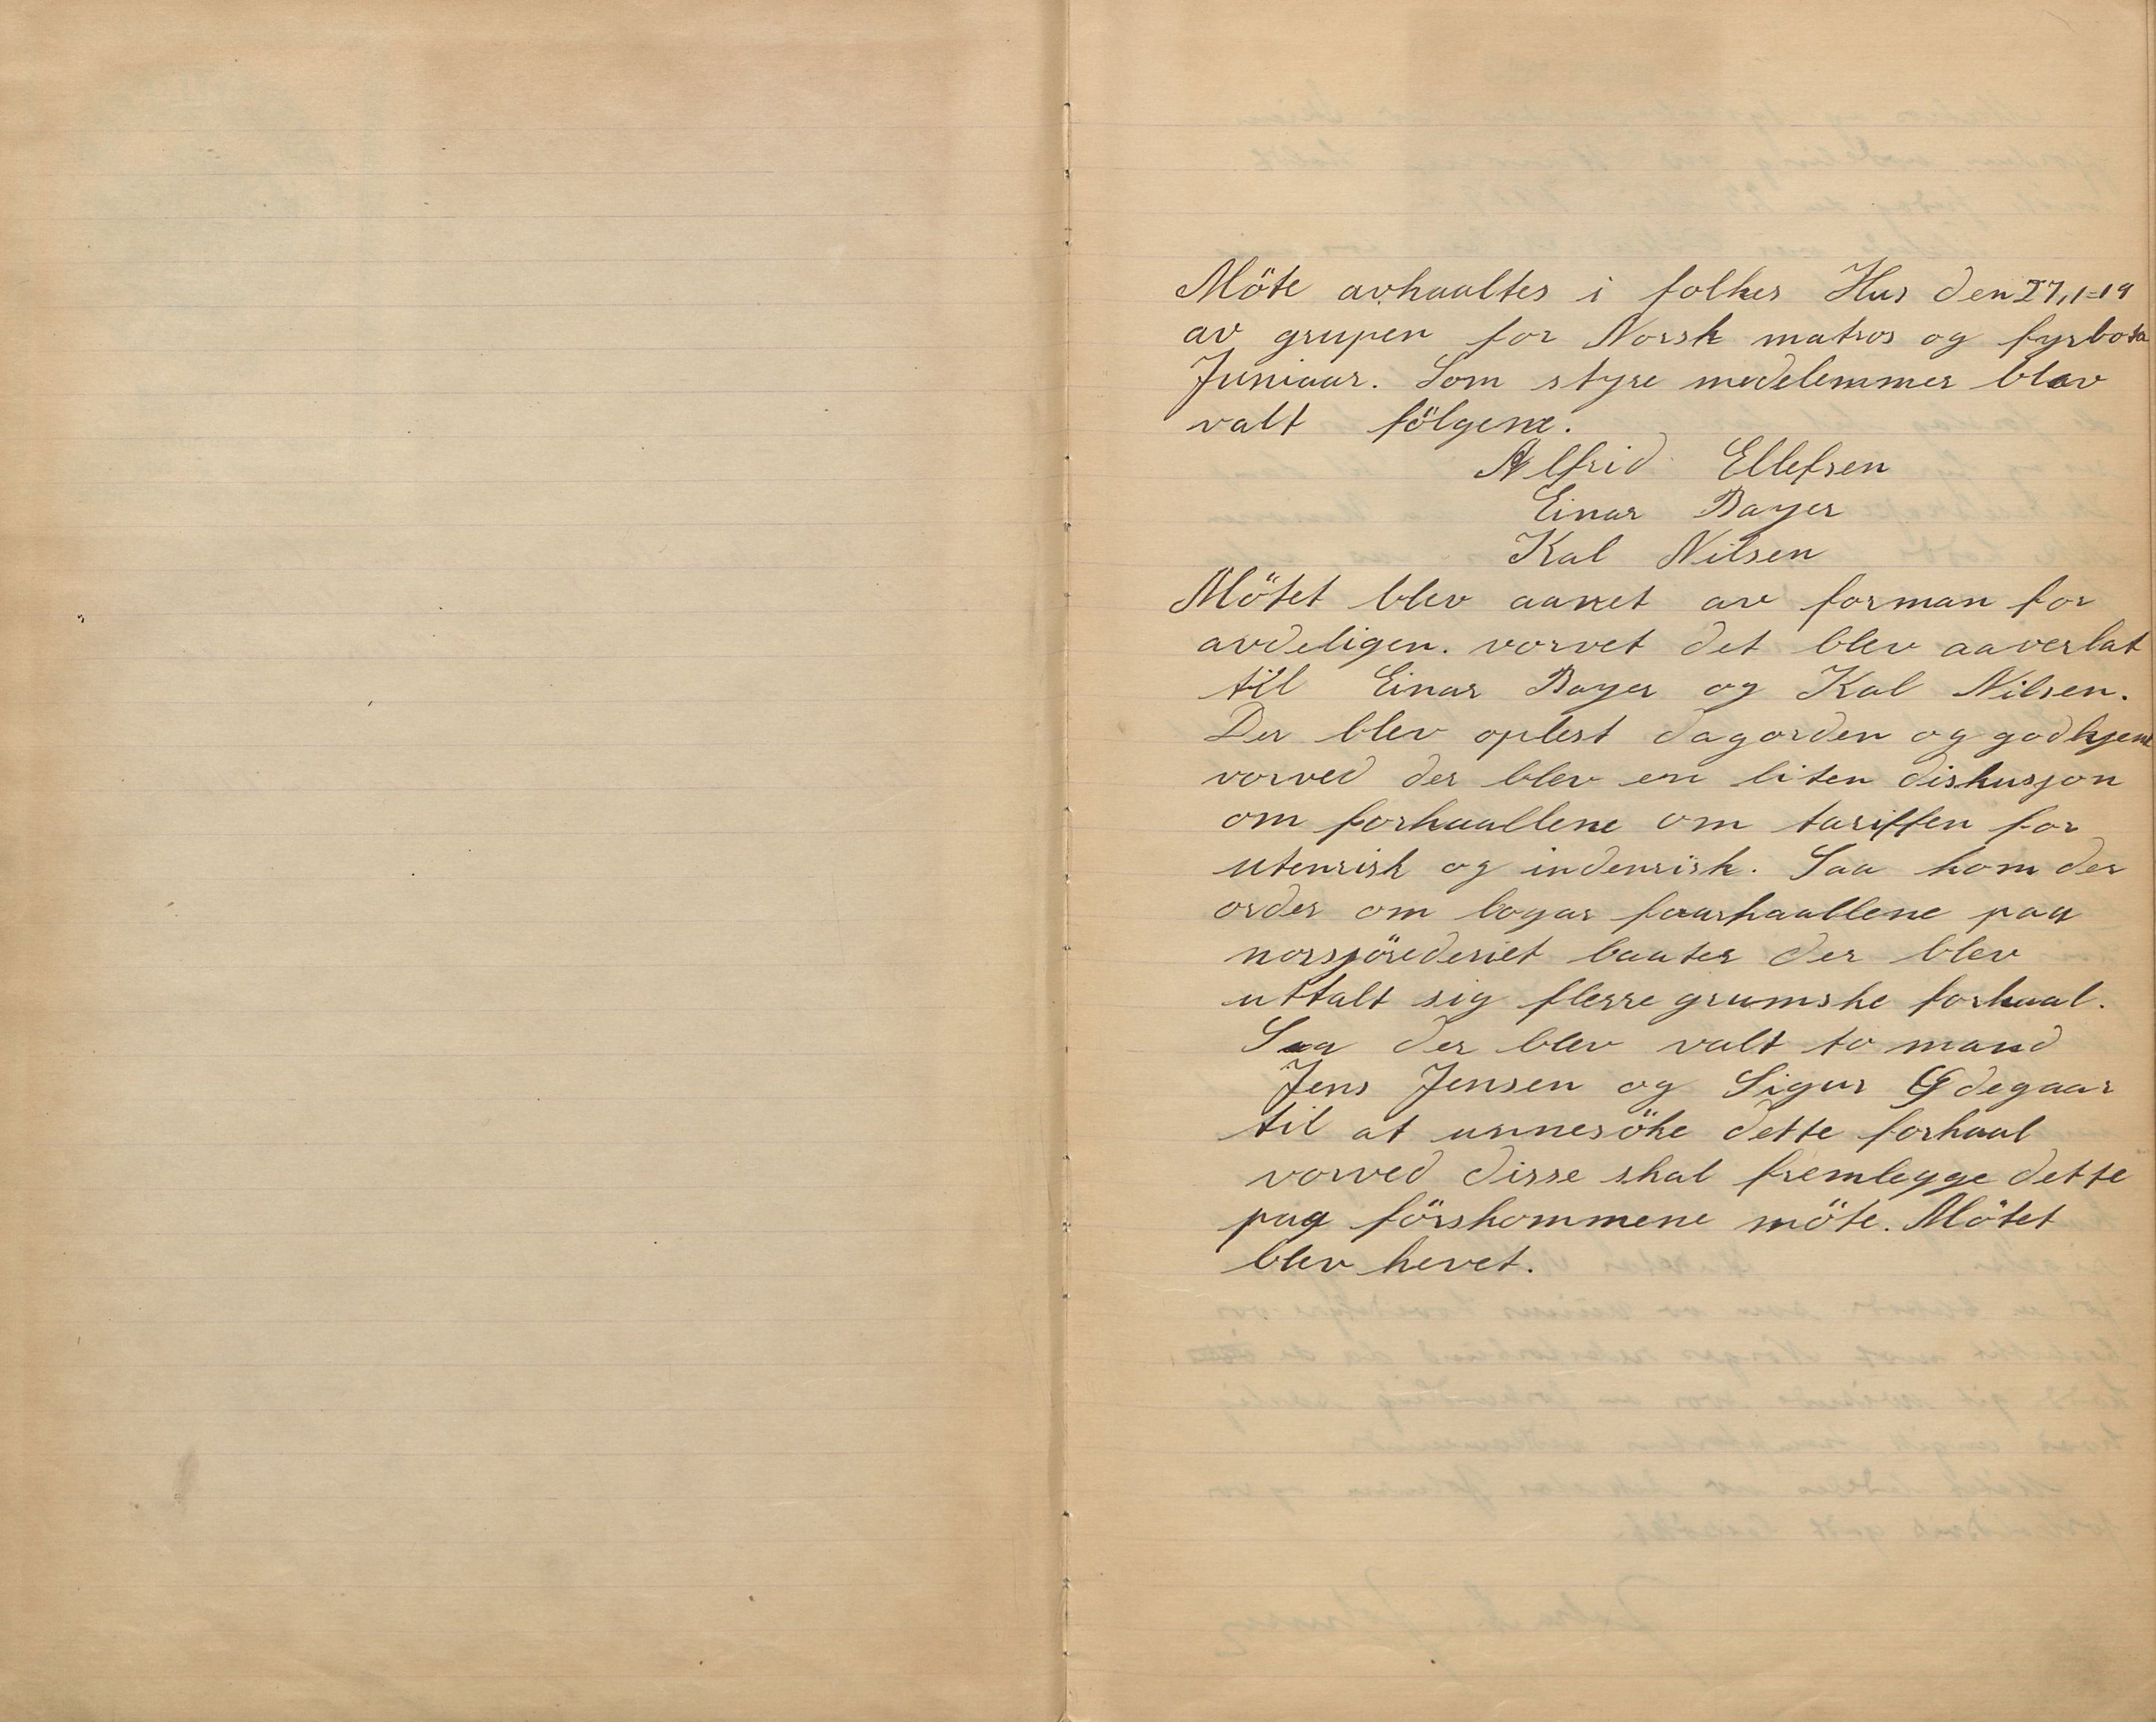 Möte avhaaltes i folkes Hus den 27,1-19
av grupen for Norsk matros og fyrbota
Juniaar. Som styre medelemmer blev
valt fölgene.
Alfrid Ellefsen
Einar Bayer
Kal Nilsen
Mötet blev aanet av forman for
avdeligen. vorvet det blev aaverlat
til Einar Bayer og Kal Nilsen.
Der blev oplest dagorden og godkjent
vorved der blev en liten diskusjon
om forhaallene om tariffen for
utenrisk og indenrisk. Saa kom der
order om logar faarhaallene paa
norsjörederiet baater der blev
uttalt sig flerre grumske forhaal.
Saa der blev valt to mand
Jens Jensen og Sigur Ödegaar
til at unnesöke dette forhaal
vorved disse skal fremlegge dette
paa förskommene möte. Mötet
blev hevet.